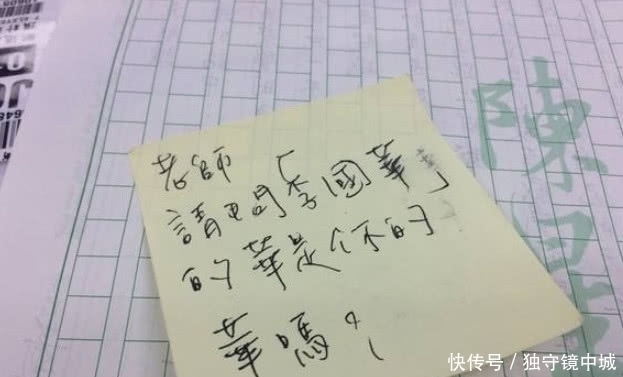 老師
請問「李國華」
的華是你的
華嗎?
陳
快传号 / 独守镜中城